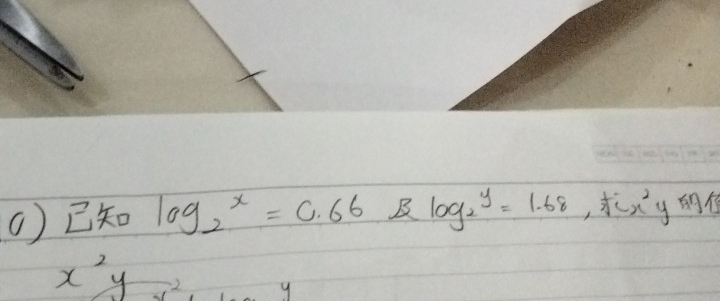 (a) 已知 log₂ˣ = 0.66 及 log₂ʸ = 1.68 , 求x²y 的值
x²y